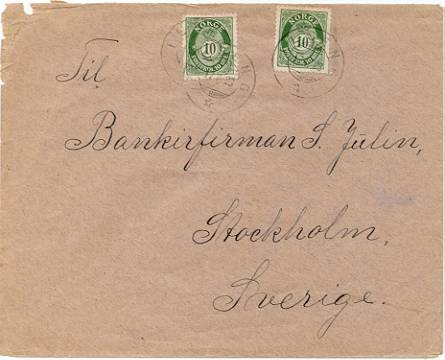 NORGE NORGE
10 10
Til
Bankirfirman S. Julin,
Stockholm,
Sverige.